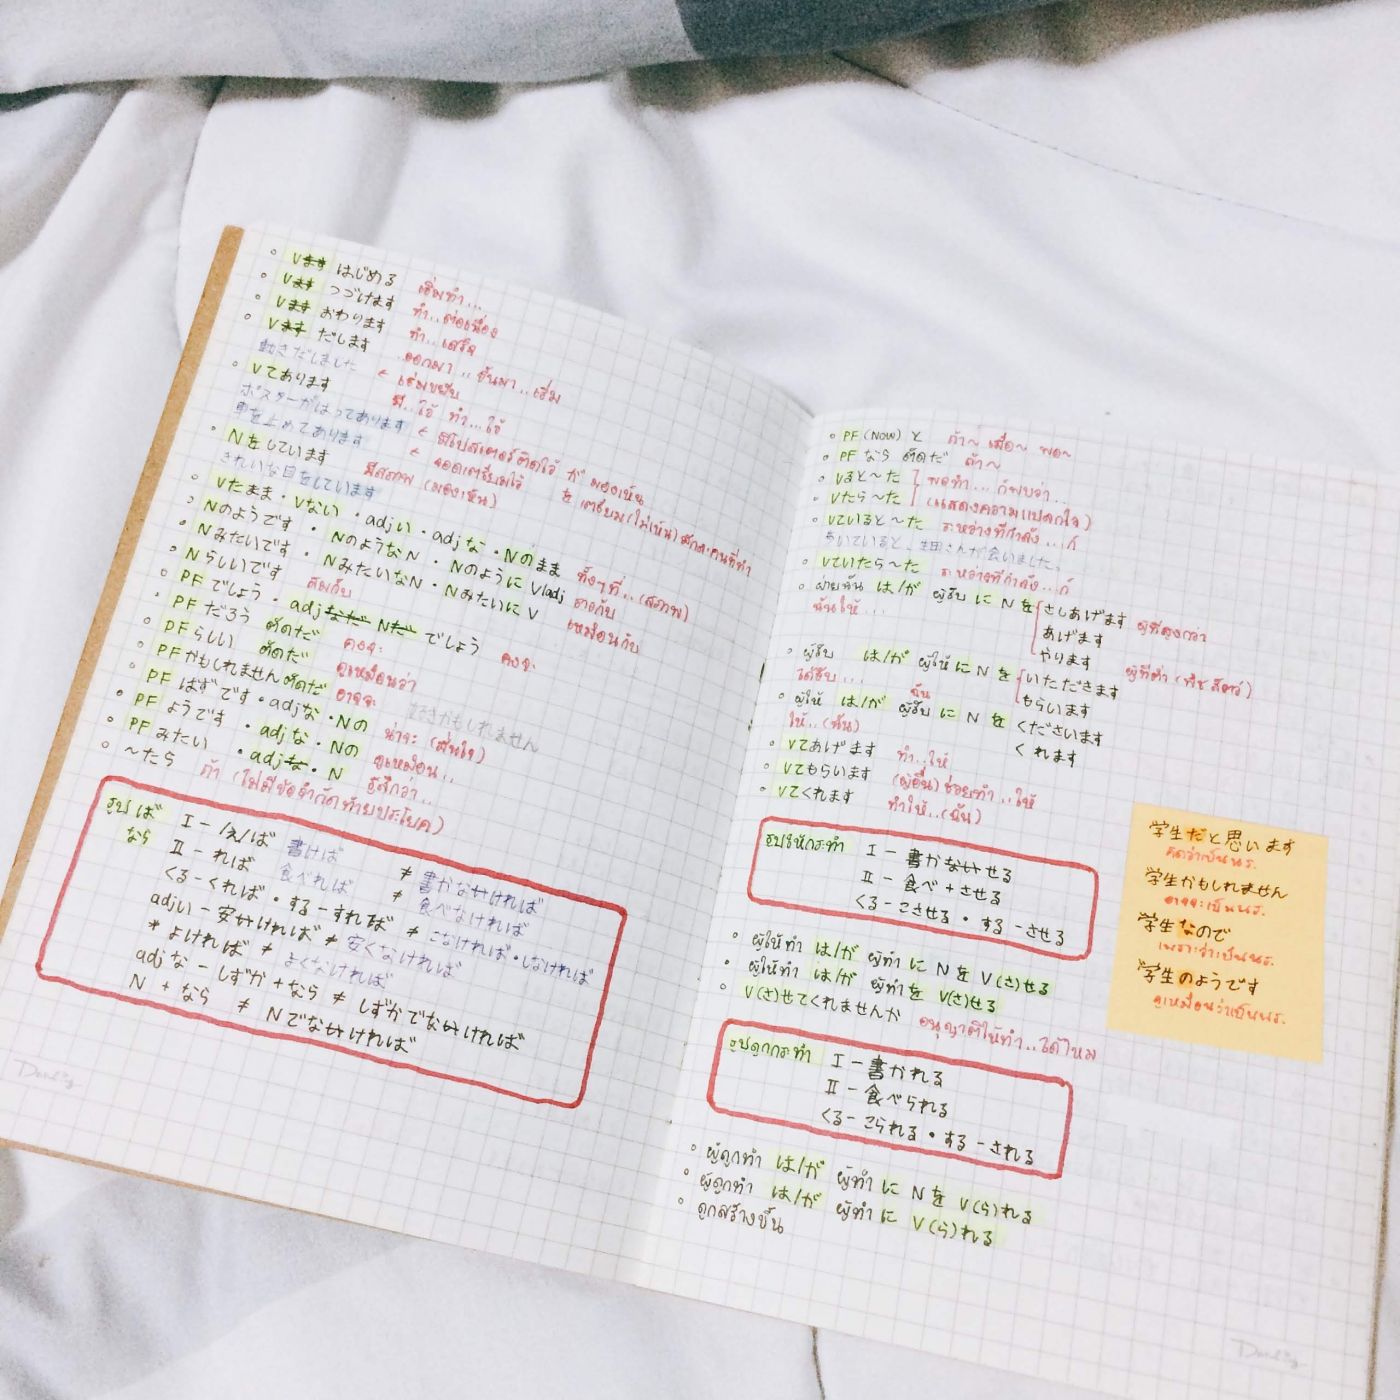 Vます はじめる เริ่มทำ...
Vます つづけます ทำ..ต่อเนื่อง
Vます おわります ทำ..เสร็จ
Vます だします ออกมา..ขึ้นมา...เริ่ม
動きだしました ← เริ่มขยับ
Vてあります มี..ไว้ ทำ...ไว้
ポスターがはってあります ← มีโปสเตอร์ติดไว้ が มองเห็น
車を止めてあります ← จอดเตรียมไว้ を เตรียม(ไม่เห็น)
Nをしています มีสภาพ (มองเห็น)
きれいな目をしています
Vたまま・Vない・adjい・adjな・Nのまま ทั้งๆที่..(สภาพ)
Nのようです・NのようなN・Nのように V/adj
Nみたいです・NみたいなN・Nみたいに V เหมือนกับ
Nらしいです สมกับ
PF でしょう・adjなだ Nだ でしょう คงจะ
PF だろう ตัดだ คงจะ
PF らしい ตัดだ ดูเหมือนว่า
PF かもしれません ตัดだ อาจจะ 好きかもしれません
PF はずです・adjな・Nの น่าจะ (มั่นใจ)
PF ようです・adjな・Nの ดูเหมือน..
PF みたい・adjな・N รู้สึกว่า..
~たら ถ้า (ไม่มีข้อจำกัดท้ายประโยค)
รูป ば なら
I - /え/ば 書けば ≠ 書かなければ
II - れば 食べれば ≠ 食べなければ
くる - くれば・する - すれば ≠ こなければ・しなければ
adjい - 安いければ ≠ 安くなければ
* よければ ≠ よくなければ
adjな - しずか + なら ≠ しずかでないければ
N + なら ≠ Nでないければ
PF (Now) と ถ้า~ เมื่อ~ พอ~
PF なら ตัดだ ถ้า~
Vると~た พอทำ...ก็พบว่า..
Vたら~た (แสดงความแปลกใจ)
Vていると~た ระหว่างที่กำลัง...ก็
Vていたら~た ระหว่างที่กำลัง...ก็
ฝ่ายฉัน は/が ผู้รับ に Nを さしあげます ผู้ที่สูงกว่า
ฉันให้... あげます
やります ผู้ที่ต่ำ (พืช สัตว์)
ผู้รับ は/が ผู้ให้ に Nを いただきます
ได้รับ... もらいます
ผู้ให้ は/が ผู้รับ に Nを くださいます
ฉัน
ให้..(ฉัน) くれます
Vてあげます ทำ..ให้
Vてもらいます (ผู้อื่น)ช่วยทำ..ให้
Vてくれます ทำให้..(ฉัน)
รูปให้กระทำ I - 書かないせる
II - 食べ + させる
くる - こさせる・する - させる
ผู้ให้ทำ は/が ผู้ทำ に Nを V(さ)せる
ผู้ให้ทำ は/が ผู้ทำ を V(さ)せる
V(さ)せてくれませんか อนุญาตให้ทำ..ได้ไหม
รูปถูกกระทำ I - 書かれる
II - 食べられる
くる - こられる・する - される
ผู้ถูกทำ は/が ผู้ทำ に Nを V(ら)れる
ผู้ถูกทำ は/が ผู้ทำ に V(ら)れる
ถูกสร้างขึ้น
学生だと思います
คิดว่าเป็นนร.
学生かもしれません
อาจจะเป็นนร.
学生なので
เพราะว่าเป็นนร.
学生のようです
ดูเหมือนว่าเป็นนร.